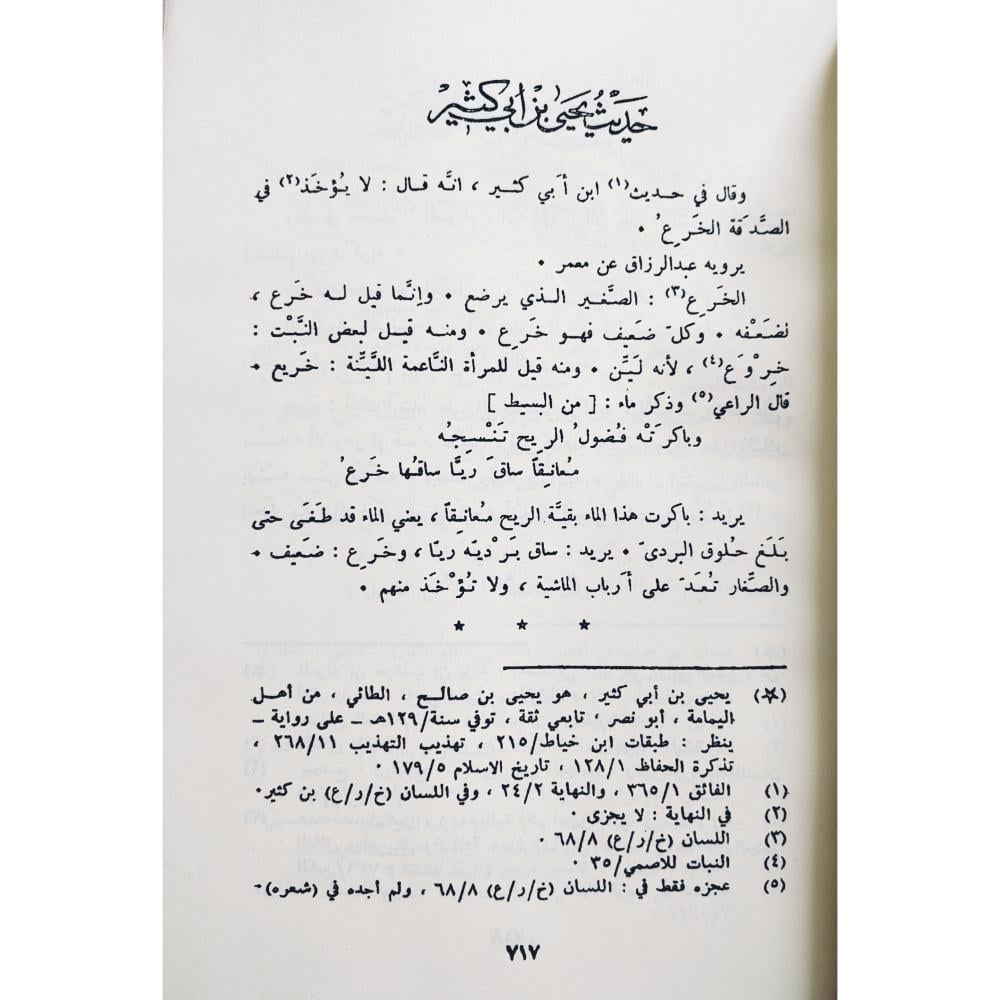 حديث يحيى بن أبي كثير
وقال في حديث(١) ابن أبي كثير ، انّه قال : لا يُؤخَذ(٢) في
الصَّدَقة الخَرِعُ ٠
يرويه عبدالرزاق عن معمر ٠
الخَرِع(٣) : الصّغير الذي يرضع ٠ وإنّما قيل له خَرِع ،
لضَعْفه ٠ وكلّ ضَعيف فهو خَرِع ٠ ومنه قيل لبعض النَّبْت :
خِرْوَع(٤) ، لأنه لَيِّن ٠ ومنه قيل للمرأة النّاعمة اللَّيِّنة : خَريع ٠
قال الراعي(٥) وذكر ماء : [ من البسيط ]
وباكرَتْه فُضولُ الريح تَنْسِجُه
مُعانِقاً ساقَ ريّا ساقُها خَرِعُ
يريد : باكرت هذا الماء بقيّة الريح مُعانِقاً ، يعني الماء قد طَغَى حتى
بَلَغ حُلوق البردىّ ٠ يريد : ساق بَرْديّه ريّا ، وخَرِع : ضَعيف ٠
والصِّغار تُعَدّ على أرباب الماشية ، ولا تُؤْخَذ منهم ٠
★ ★ ★
(☆) يحيى بن أبي كثير ، هو يحيى بن صالح ، الطائي ، من أهل
اليمامة ، أبو نصر ، تابعي ثقة ، توفي سنة/١٢٩هـ – على رواية –
ينظر : طبقات ابن خياط/٢١٥ ، تهذيب التهذيب ٢٦٨/١١ ،
تذكرة الحفاظ ١٢٨/١ ، تاريخ الاسلام ١٧٩/٥ ٠
(١) الفائق ٣٦٥/١ ، والنهاية ٢٤/٢ ، وفي اللسان (خ/ر/ع) بن كثير٠
(٢) في النهاية : لا يجزى ٠
(٣) اللسان (خ/ر/ع) ٦٨/٨ ٠
(٤) النبات للاصمي/٣٥ ٠
(٥) عجزه فقط في : اللسان (خ/ر/ع) ٦٨/٨ ، ولم أجده في (شعره)٠
٧١٧